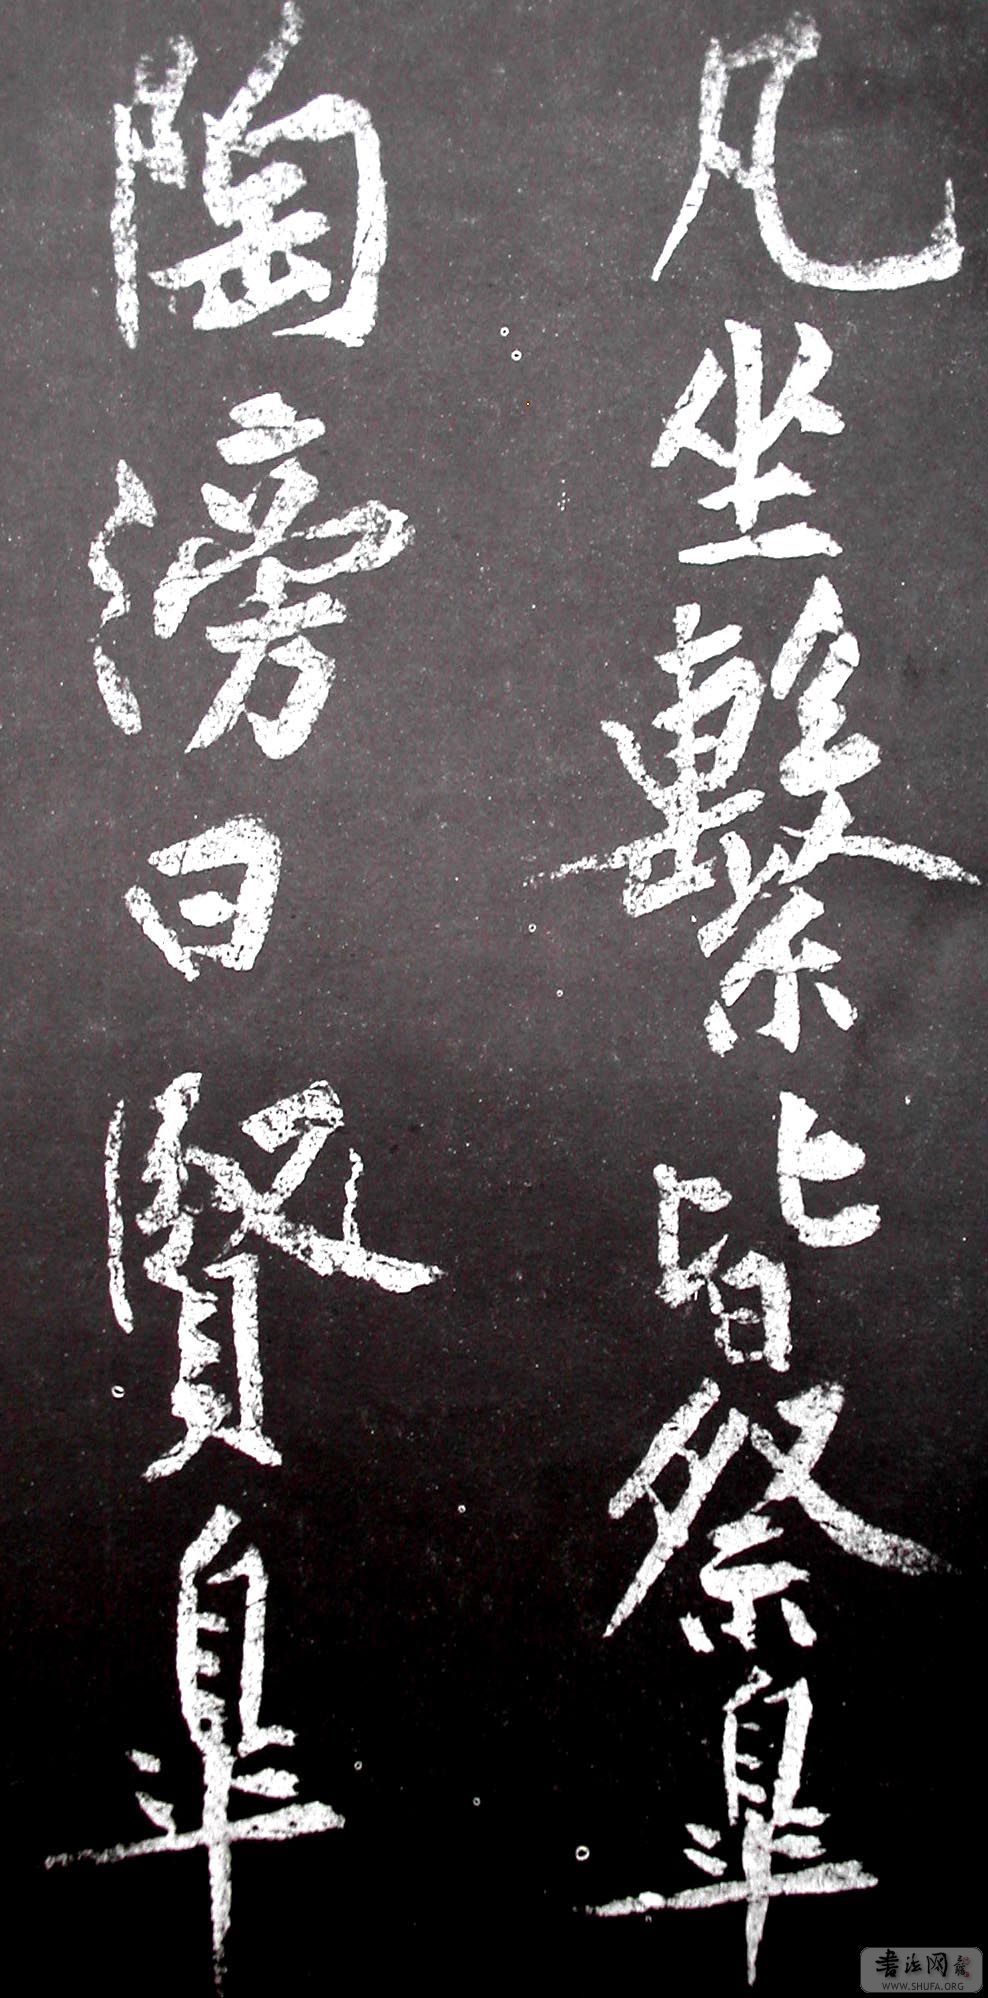 凡坐繫皆祭皐
陶滂曰賢皐
書法网
WWW.SHUFA.ORG